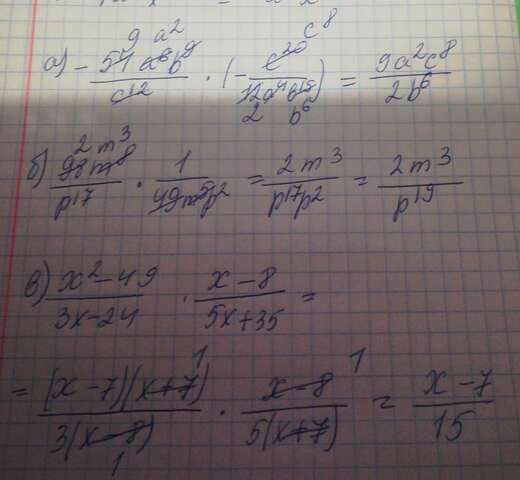 9 a² c⁸
а) - 54 a⁶ b⁹ / c¹² · (- c²⁰ / 12a⁴b¹⁵) = 9a²c⁸ / 2b⁶
2 b⁶
2 m³
б) 98m⁸ / p¹⁷ · 1 / 49m⁵p² = 2m³ / p¹⁷p² = 2m³ / p¹⁹
в) x² - 49 / 3x - 24 · x - 8 / 5x + 35 =
1 1
= (x - 7)(x + 7) / 3(x - 8) · x - 8 / 5(x + 7) = x - 7 / 15
1